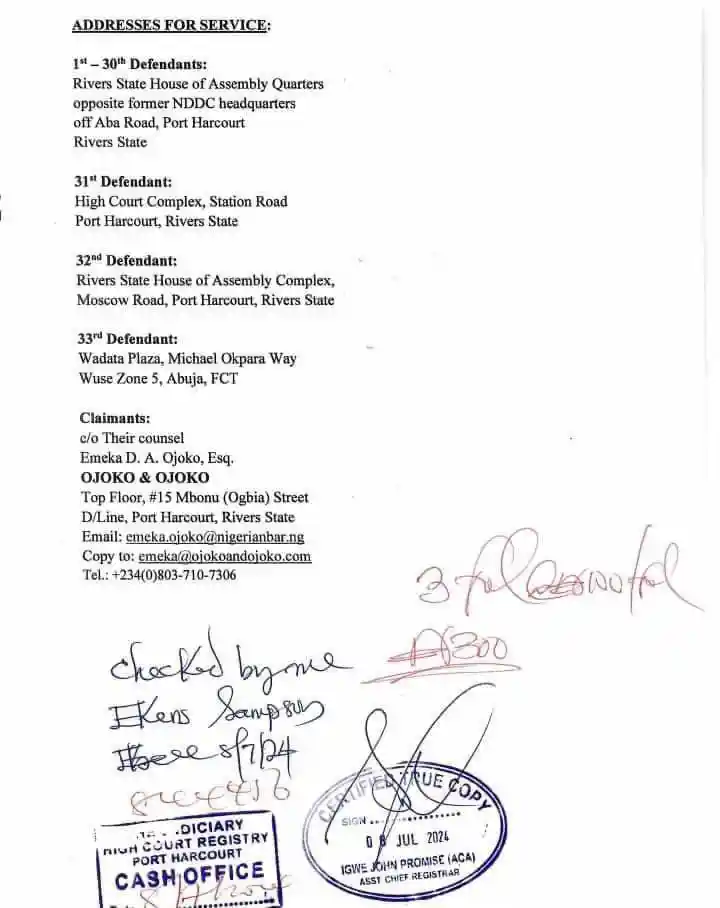 ADDRESSES FOR SERVICE:
1st – 30th Defendants:
Rivers State House of Assembly Quarters
opposite former NDDC headquarters
off Aba Road, Port Harcourt
Rivers State
31st Defendant:
High Court Complex, Station Road
Port Harcourt, Rivers State
32nd Defendant:
Rivers State House of Assembly Complex,
Moscow Road, Port Harcourt, Rivers State
33rd Defendant:
Wadata Plaza, Michael Okpara Way
Wuse Zone 5, Abuja, FCT
Claimants:
c/o Their counsel
Emeka D. A. Ojoko, Esq.
OJOKO & OJOKO
Top Floor, #15 Mbonu (Ogbia) Street
D/Line, Port Harcourt, Rivers State
Email: emeka.ojoko@nigerianbar.ng
Copy to: emeka@ojokoandojoko.com
Tel.: +234(0)803-710-7306
3
₦300
checked by me
Ekens Sampson
8/7/24
CERTIFIED TRUE COPY
SIGN
08 JUL 2024
IGWE JOHN PROMISE (ACA)
ASST CHIEF REGISTRAR
HIGH COURT REGISTRY
PORT HARCOURT
CASH OFFICE